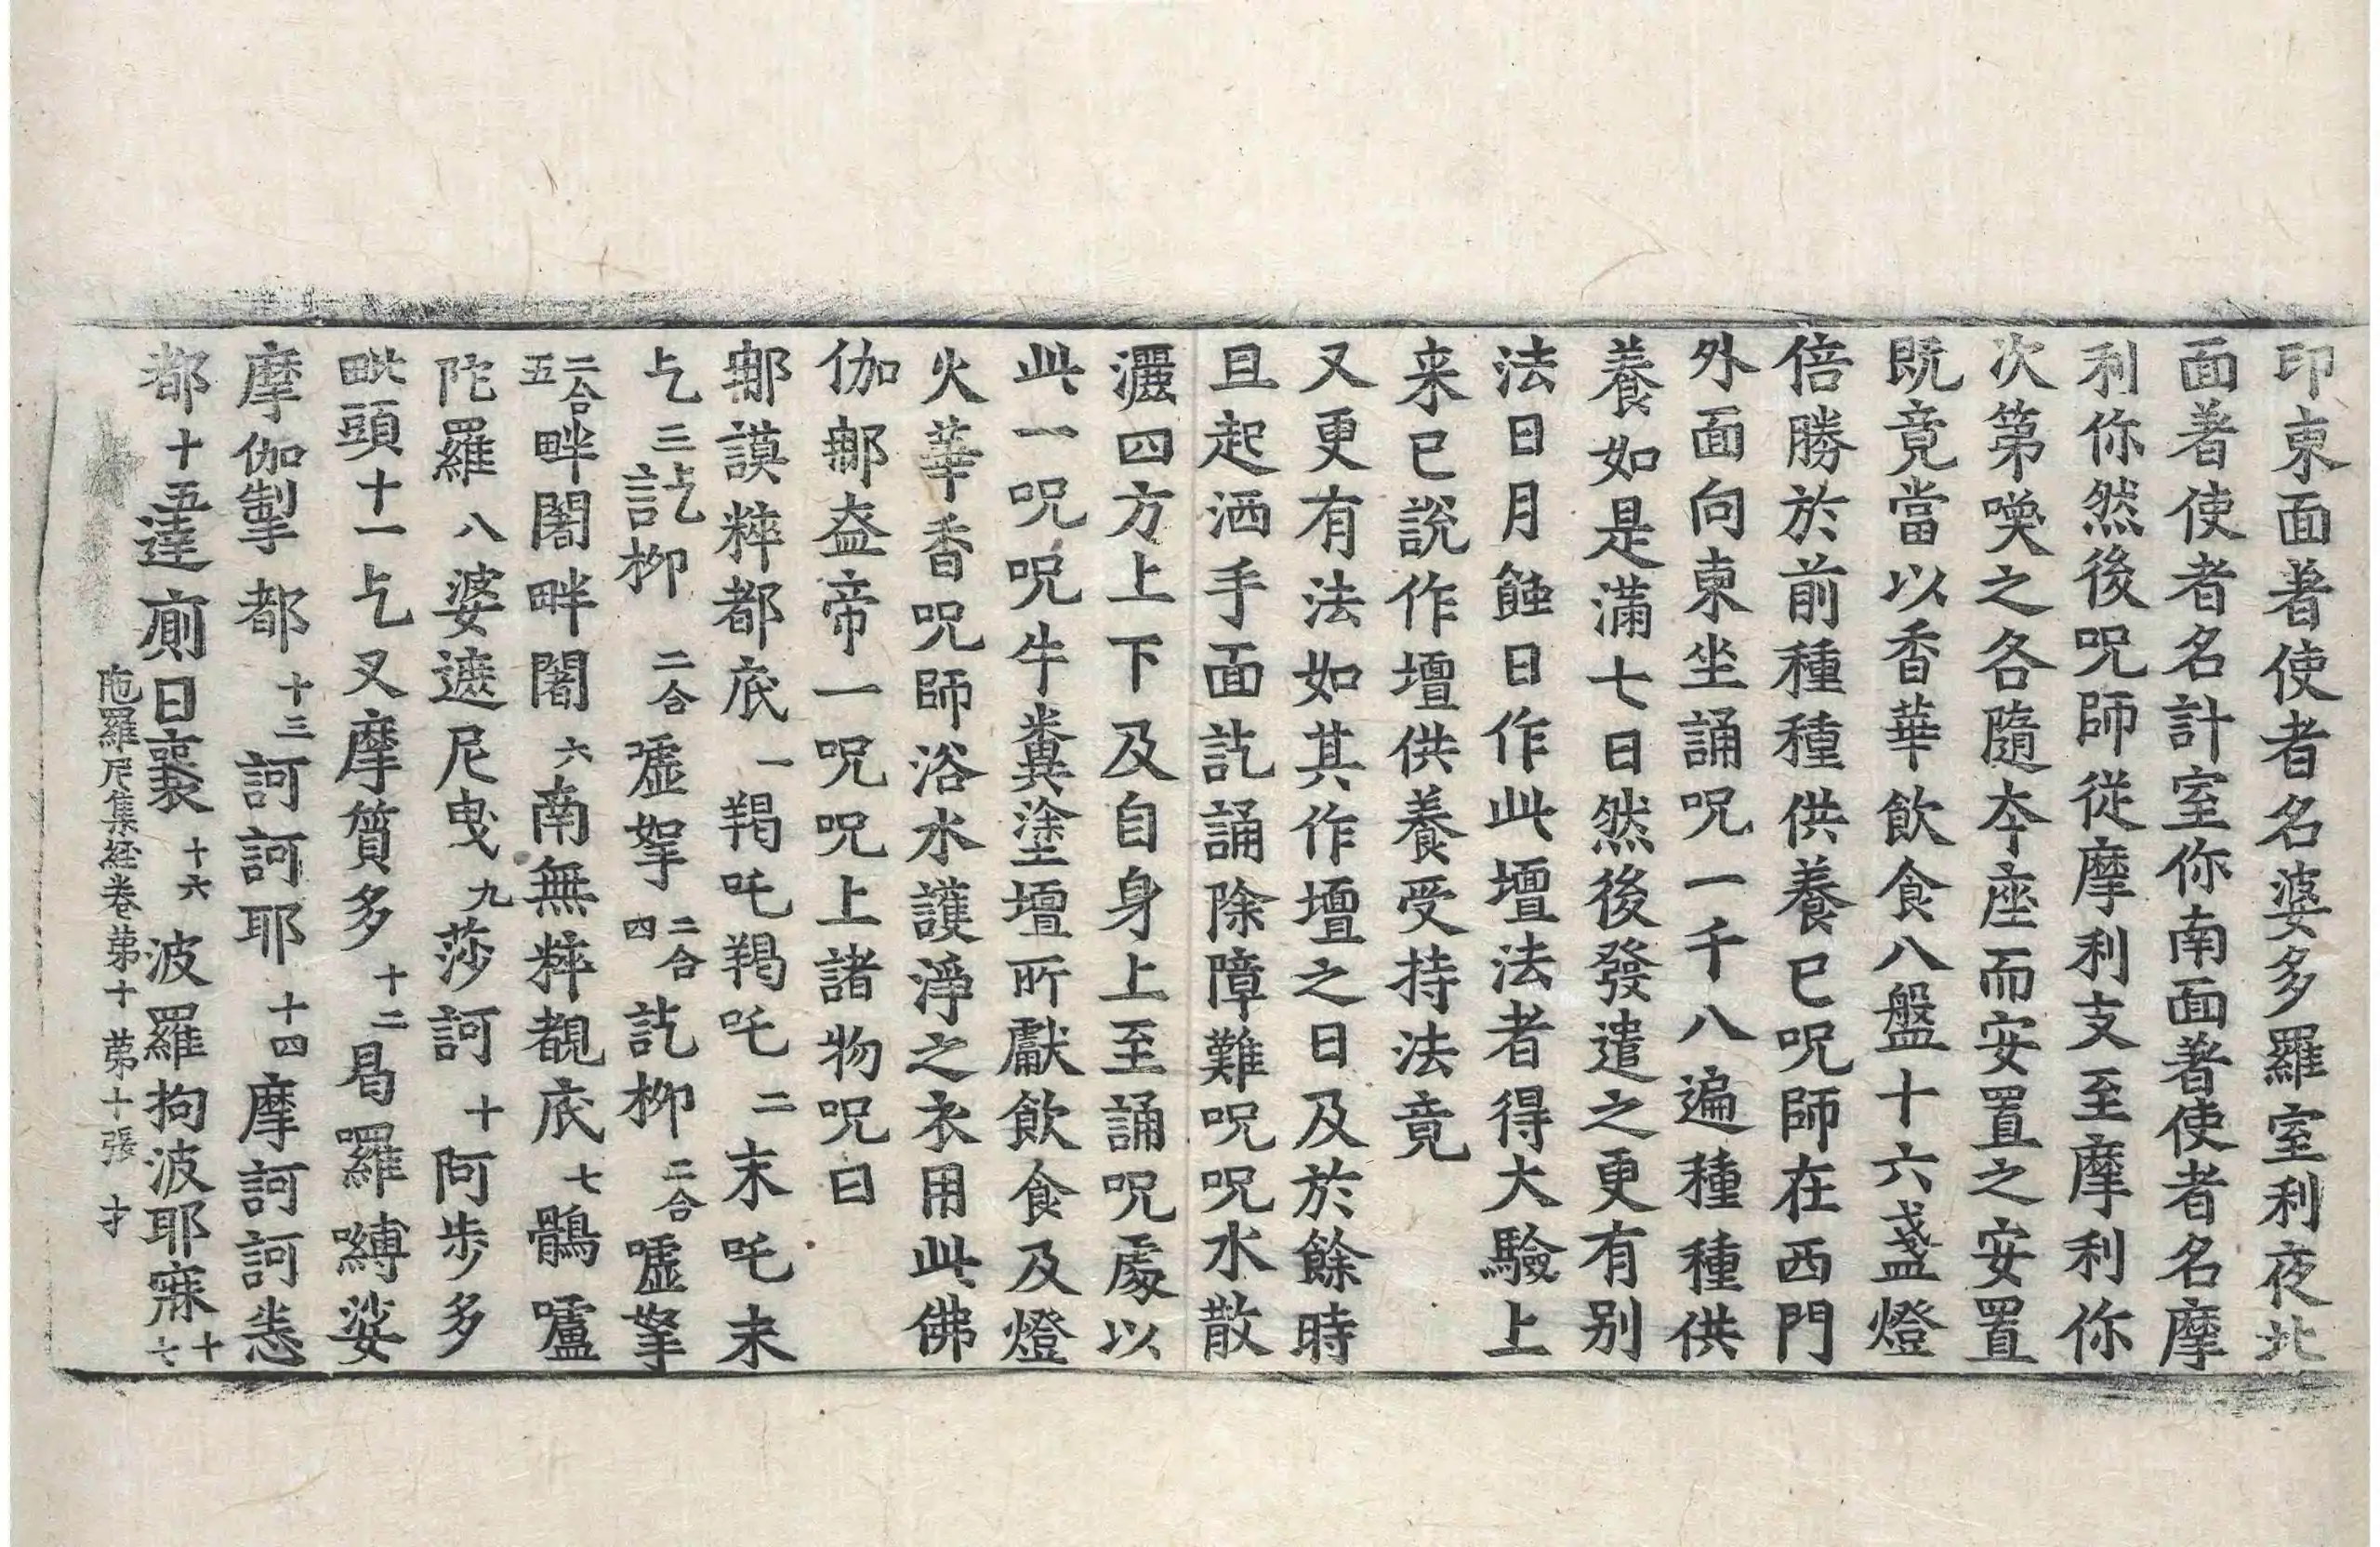 印東面著使者名婆多羅室利夜北
面著使者名計室你南面著使者名摩
利你然後呪師從摩利支至摩利你
次第喚之各隨夲座而安置之安置
既竟當以香華飲食八盤十六盞燈
倍勝於前種種供養已呪師在西門
外面向東坐誦呪一千八遍種種供
養如是滿七日然後發遣之更有别
法日月蝕日作此壇法者得大驗上
来已說作壇供養受持法竟
又更有法如其作壇之日及於餘時
且起洒手面訖誦除障難呪呪水散
灑四方上下及自身上至誦呪處以
此一呪呪牛糞塗壇所獻飲食及燈
火華香呪師浴水護淨之衣用此佛
伽𨚗盎帝一呪呪上諸物呪曰
𨚗謨粹都底一羯吒羯吒二末吒末
乞三訖柳二合噓拏二合四訖柳二合噓拏
二合五畔闍畔闍六南無粹覩底七鶻嚧
陀羅八婆遮尼曳九莎訶十阿步多
毗頭十一乞叉摩質多十二曷羅嚩娑
摩伽掣都十三訶訶耶十四摩訶訶悉
都十五達廁曰襄十六波羅拘波耶寐十七
陁羅尼集経卷苐十 苐十張 才